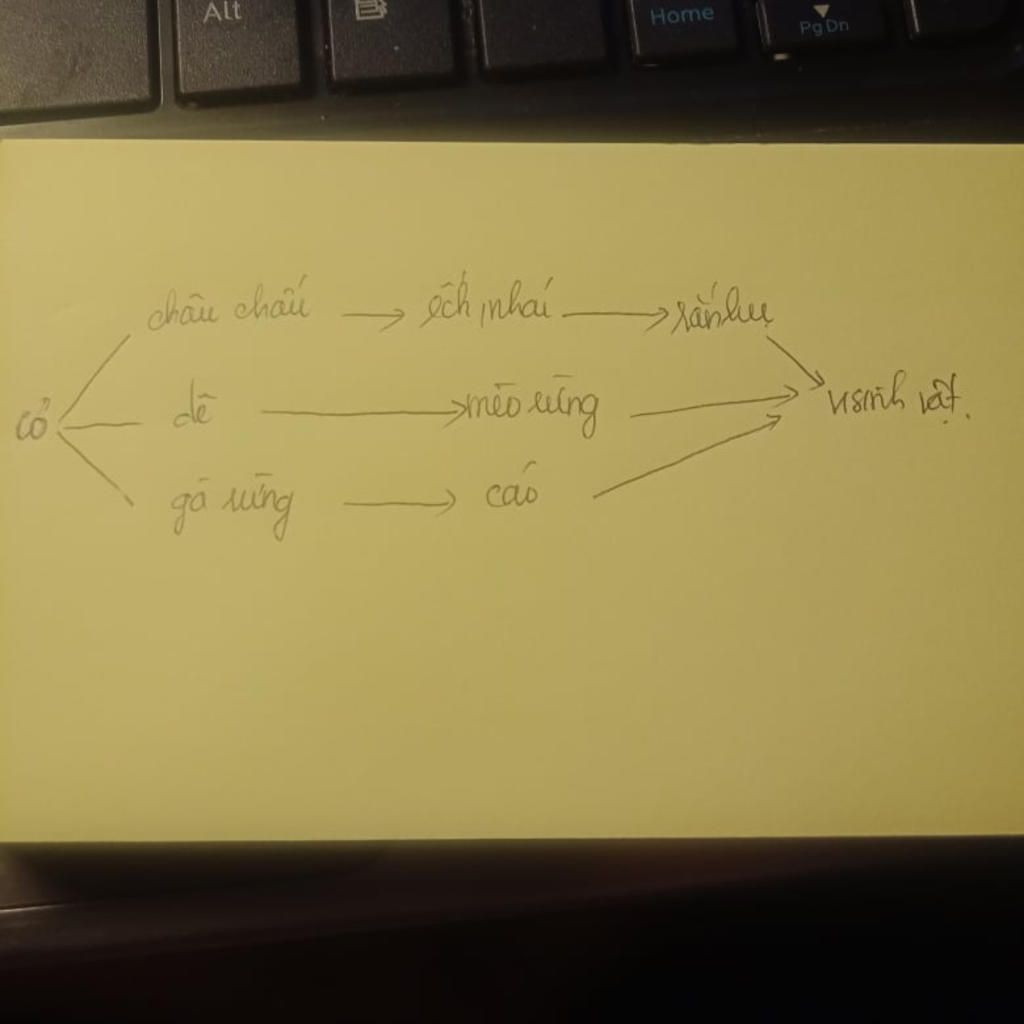 Alt
Home
PgDn
châu chấu → ếch, nhái → rắn hu
cỏ dê → mèo rừng → v sinh vật.
gà rừng → cáo